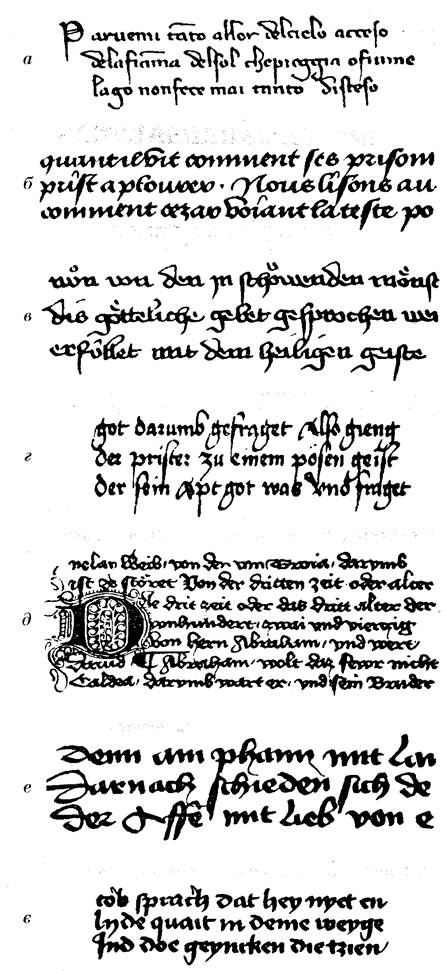 а
Paruemi tanto allor del cielo acceso
dela fiama del sol che pioggia o fiume
lago non fece mai tanto disteso
б
comment ses prisom
prist a plourer. Nous lisons au
comment cezar voiant la teste po
в
von den in
dis götteliche gebet gesprochen
mit dem heiligen geiste
г
got darumb gefraget Also gieng
der prister zu einem pösen geist
der sein Apt got was Vnd fraget
д
weib, von der Troia, darumb
ist Von der dritten zeit oder alter
Die drit zeit oder das dritt alter der
vonhundert, zwai vnd viertzig
von hern Abraham, vnd wert
Dauid Abraham, wolt daz fewr nicht
Caldea, darumb wart er, vnd sein Bruder
е
Denn am mit
Darnach schieden sich de
der Affe mit lieb von e
є
sprach dat hey nyet en
lyde quait in deme weyge
Ind doe geyncken die